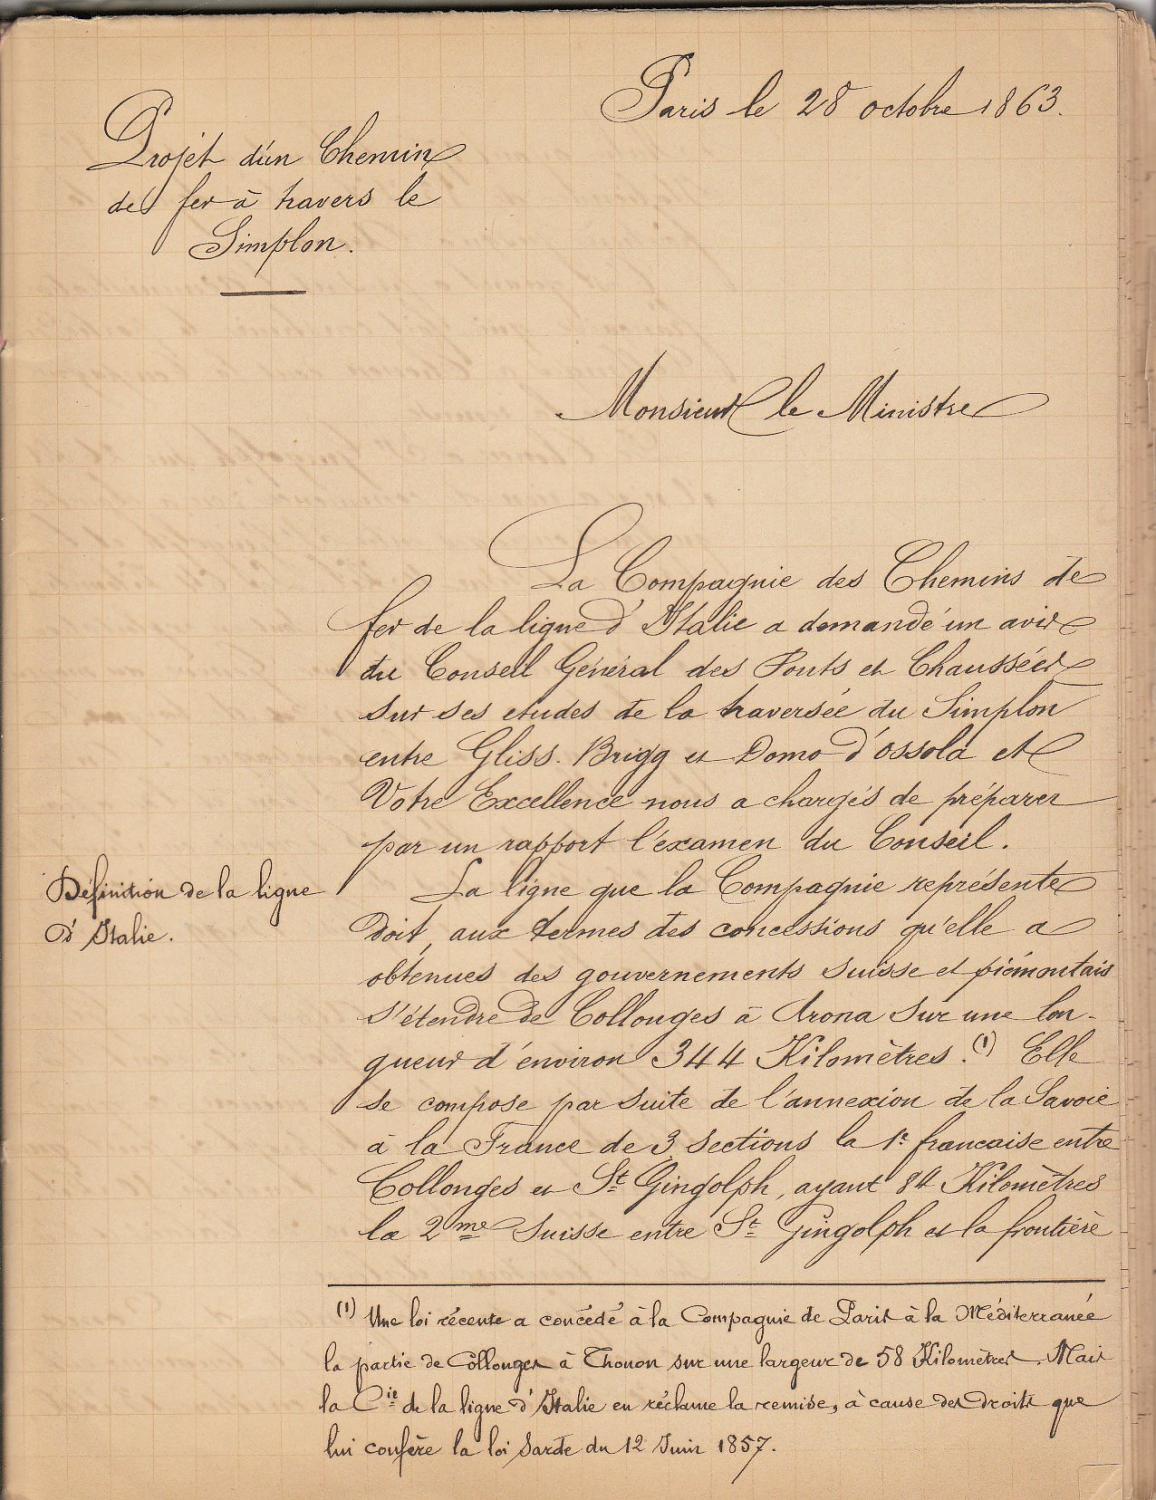 Paris le 28 octobre 1863.
Projet d'un Chemin
de fer à travers le
Simplon.
Monsieur le Ministre
La Compagnie des Chemins de
fer de la ligne d'Italie a demandé un avis
du Conseil Général des Ponts et Chaussées
sur ses etudes de la traversée du Simplon
entre Gliss. Brigg et Domo d'ossola et
Votre Excellence nous a chargés de préparer
par un rapport l'éxamen du Conseil.
Définition de la ligne
d'Italie.
La ligne que la Compagnie représente
doit, aux termes des concessions qu'elle a
obtenues des gouvernements suisse et piémontais
s'étendre de Collonges à Arona sur une lon-
gueur d'environ 344 Kilomètres.(1) Elle
se compose par suite de l'annexion de la Savoie
à la France de 3 sections la 1e francaise entre
Collonges et St Gingolph, ayant 84 Kilomètres
la 2me Suisse entre St Gingolph et la frontière
(1) Une loi récente a concédé à la Compagnie de Paris à la Méditerranée
la partie de Collonges à Thonon sur une largeur de 58 Kilomètres. Mais
la Cie de la ligne d'Italie en réclame la remise, à cause des droits que
lui confère la loi Sarde du 12 Juin 1857.